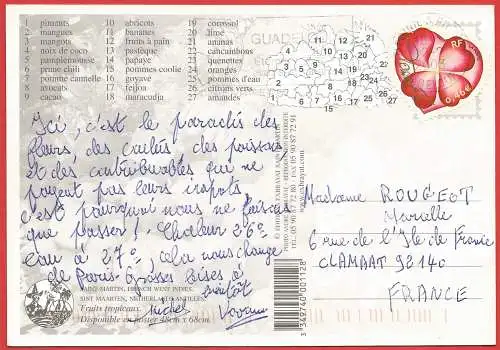 1 piments
2 mangues
3 mangots
4 noix de coco
5 pamplemousse
6 prune chili
7 pomme cannelle
8 avocats
9 cacao
10 abricots
11 bananes
12 fruits à pain
13 pommes
14 papaye
15 pommes coolie
16 goyave
17 feijoa
18 maracudja
19 corossol
20 lime
21 ananas
22 cahuchantins
23 quenettes
24 oranges
25 pommes d'eau
26 citrons verts
27 amandes
GUADEL
RF
0,46€
Ici, c'est le paradis des
fleurs, des cactus des poissons
et des contribuables qui ne
payent pas leurs impots,
c'est pourquoi nous ne faisons
que passer ! Chaleur 26°
Eau à 27°, cela nous change
de Paris. Grosses bises à
bientôt
Michel
SAINT-MARTIN, FRENCH WEST INDIES.
SINT MAARTEN, NETHERLANDS ANTILLES
Fruits tropicaux
Disponible en poster 48cm x 68cm.
3 349740 001128
Madame ROUGEOT
Marielle
6 rue de l'Ile de France
CLAMART 92140
FRANCE